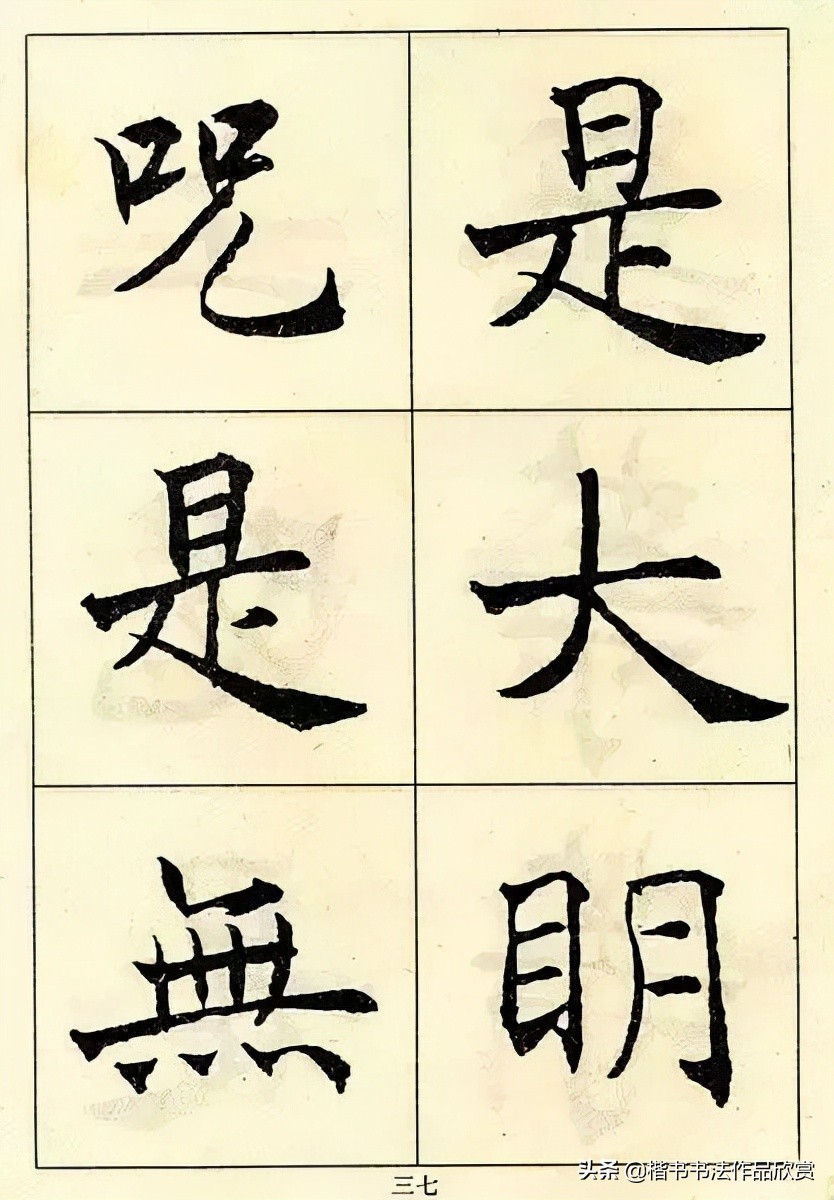 是大明
咒是無
三七
头条 @楷书书法作品欣赏